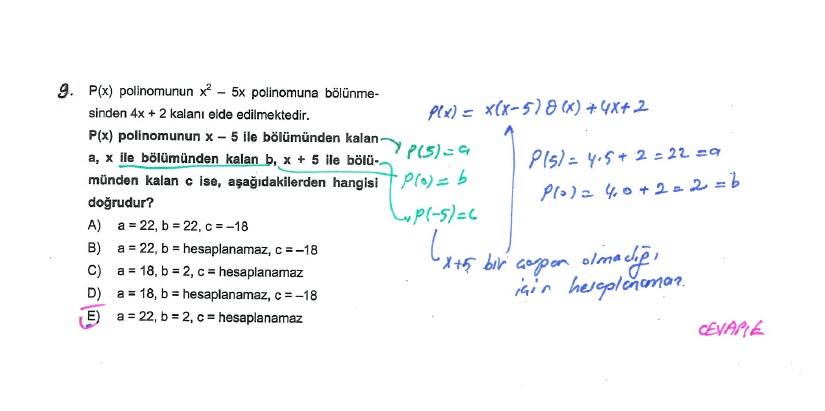 9. P(x) polinomunun x² – 5x polinomuna bölünme-
sinden 4x + 2 kalanı elde edilmektedir.
P(x) polinomunun x – 5 ile bölümünden kalan
a, x ile bölümünden kalan b, x + 5 ile bölü-
münden kalan c ise, aşağıdakilerden hangisi
doğrudur?
A) a = 22, b = 22, c = –18
B) a = 22, b = hesaplanamaz, c = –18
C) a = 18, b = 2, c = hesaplanamaz
D) a = 18, b = hesaplanamaz, c = –18
E) a = 22, b = 2, c = hesaplanamaz
P(5) = a
P(0) = b
P(-5) = c
P(x) = x(x-5) Q(x) + 4x + 2
P(5) = 4.5 + 2 = 22 = a
P(0) = 4.0 + 2 = 2 = b
x+5 bir çarpan olmadığı
için hesaplanamaz.
CEVAP: E